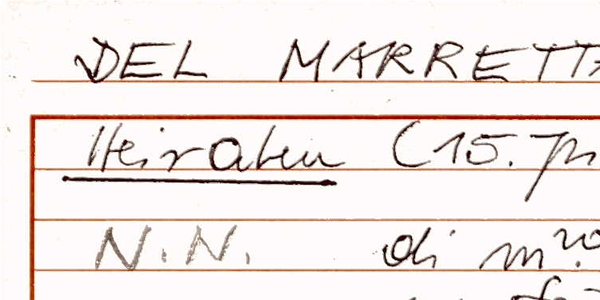 DEL MARRETTA
Heiraten (15. Jh
N.N. di m.ro